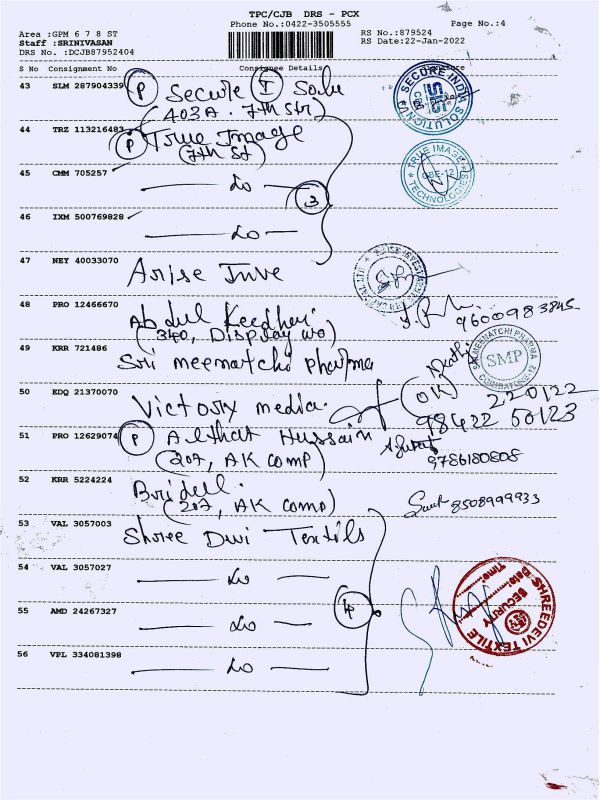 TPC/CJB DRS - PCX
Phone No.:0422-3505555 Page No.:4
Area :GPM 6 7 8 ST RS No.:879524
Staff :SRINIVASAN RS Date:22-Jan-2022
DRS No. :DCJB87952404
S No Consignment No Consignee Details Signature
43 SLM 287904339 P Secure I Solu
(403A. 7th Str)
SECURE INDIA SOLUTION
44 TRZ 113216483 P True Image
(7th St)
TRUE IMAGE TECHNOLOGIES CBE-12
45 CMM 705257 Do
3
46 IXM 500769828 Do
47 NEY 40033070 Arise Inve
48 PRO 12466670 Abdul
(340, Display wo) 9600983845
49 KRR 721486 Sri meenatchi Pharma
SRI MEENATCHI PHARMA SMP COIMBATORE-12
50 KDQ 21370070 Victory media. (OK) 220122
98422 50123
51 PRO 12629074 P Althat Hussain
(207, AK comp) 9786180808
52 KRR 5224224
(207, AK comp) 8508999933
53 VAL 3057003 Shree Dwi Textils
54 VAL 3057027 Do
4
SHREEDEVI TEXTILE SECURITY Date Time
55 AMD 24267327 Do
56 VPL 334081398 Do